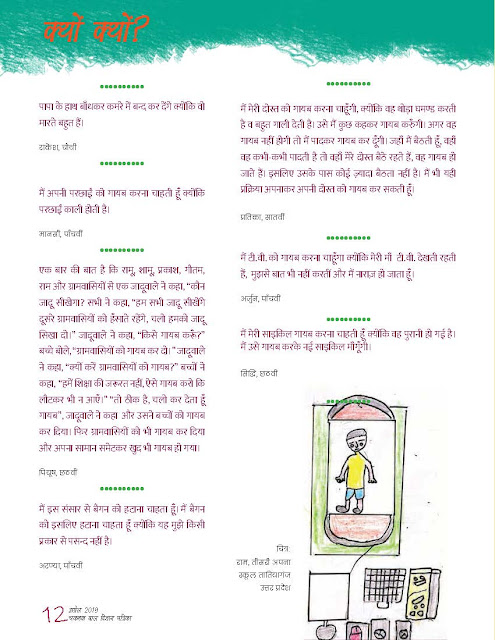 क्यों क्यों?
पापा के हाथ बाँधकर कमरे में बन्द कर देंगे क्योंकि वो
मारते बहुत हैं।
राकेश, चौथी
मैं अपनी परछाई को गायब करना चाहती हूँ क्योंकि
परछाई काली होती है।
मानसी, पाँचवीं
एक बार की बात है कि रामू, शामू, प्रकाश, गौतम,
राम और ग्रामवासियों से एक जादूवाले ने कहा, “कौन
जादू सीखेगा? सभी ने कहा, “हम सभी जादू सीखेंगे
दूसरे ग्रामवासियों को हँसाते रहेंगे, चलो हमको जादू
सिखा दो।” जादूवाले ने कहा, “किसे गायब करूँ?”
बच्चे बोले, “ग्रामवासियों को गायब कर दो।” जादूवाले
ने कहा, “क्यों करें ग्रामवासियों को गायब?” बच्चों ने
कहा, “हमें शिक्षा की जरूरत नहीं, ऐसे गायब करो कि
लौटकर भी न आएँ।” “तो ठीक है, चलो कर देता हूँ
गायब”, जादूवाले ने कहा और उसने बच्चों को गायब
कर दिया। फिर ग्रामवासियों को भी गायब कर दिया
और अपना सामान समेटकर खुद भी गायब हो गया।
पियूष, छठवीं
मैं इस संसार से बैंगन को हटाना चाहता हूँ। मैं बैंगन
को इसलिए हटाना चाहता हूँ क्योंकि यह मुझे किसी
प्रकार से पसन्द नहीं है।
अरण्या, पाँचवीं
मैं मेरी दोस्त को गायब करना चाहूँगी, क्योंकि वह थोड़ा घमण्ड करती
है व बहुत गाली देती है। उसे मैं कुछ कहकर गायब करूँगी। अगर वह
गायब नहीं होगी तो मैं पादकर गायब कर दूँगी। जहाँ मैं बैठती हूँ, वहीं
वह कभी-कभी पादती है तो वहाँ मेरे दोस्त बैठे रहते हैं, वह गायब हो
जाते हैं। इसलिए उसके पास कोई ज़्यादा बैठता नहीं है। मैं भी यही
प्रक्रिया अपनाकर अपनी दोस्त को गायब कर सकती हूँ।
प्रतिका, सातवीं
मैं टी.वी. को गायब करना चाहूँगा क्योंकि मेरी माँ टी.वी. देखती रहती
हैं, मुझसे बात भी नहीं करतीं और मैं नाराज़ हो जाता हूँ।
अर्जुन, पाँचवीं
मैं मेरी साइकिल गायब करना चाहती हूँ क्योंकि वह पुरानी हो गई है।
मैं उसे गायब करके नई साइकिल माँगूँगी।
सिद्धि, छठवीं
चित्र:
राम, तीसरी अपना
स्कूल तातियागंज
उत्तर प्रदेश
12 अप्रैल 2019
चकमक बाल विज्ञान पत्रिका